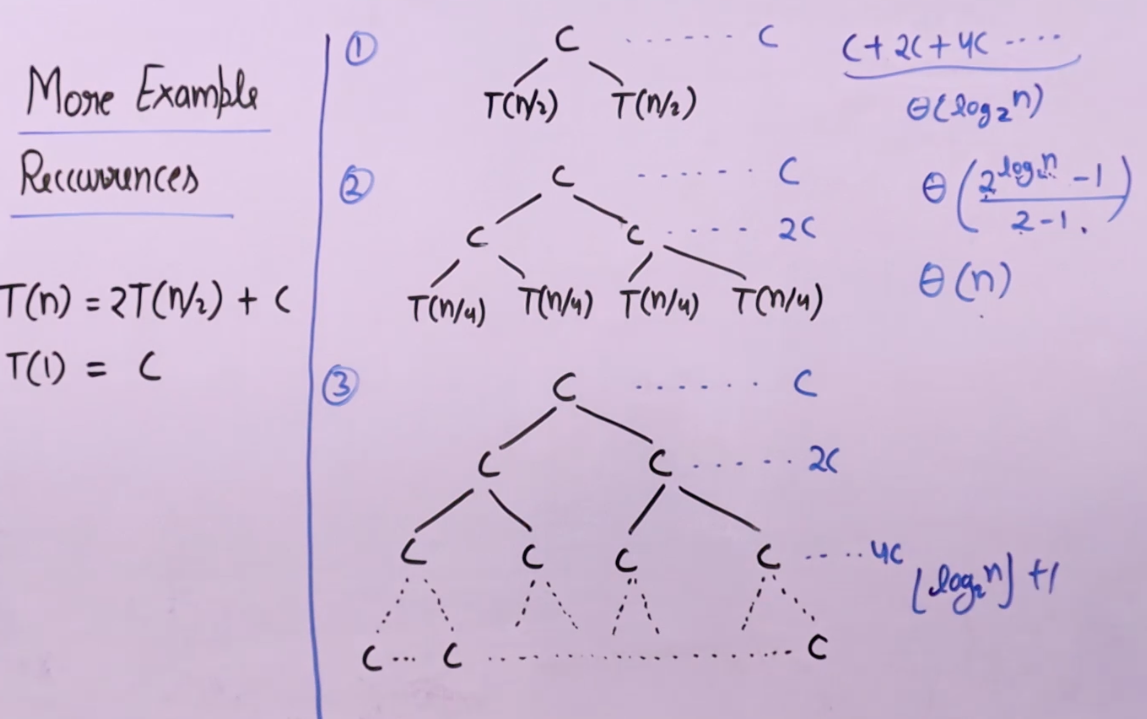 More Example
Reccurrences
T(n) = 2T(n/2) + C
T(1) = C
① C ....... C
T(n/2) T(n/2)
② C ....... C
C C .... 2C
T(n/4) T(n/4) T(n/4) T(n/4)
③ C ...... C
C C ...... 2C
C C C C .... 4C
C ... C .................... C
C + 2C + 4C ....
θ(log₂n)
θ((2^log₂n - 1)/(2-1.))
θ(n)
⌊log₂n⌋ + 1